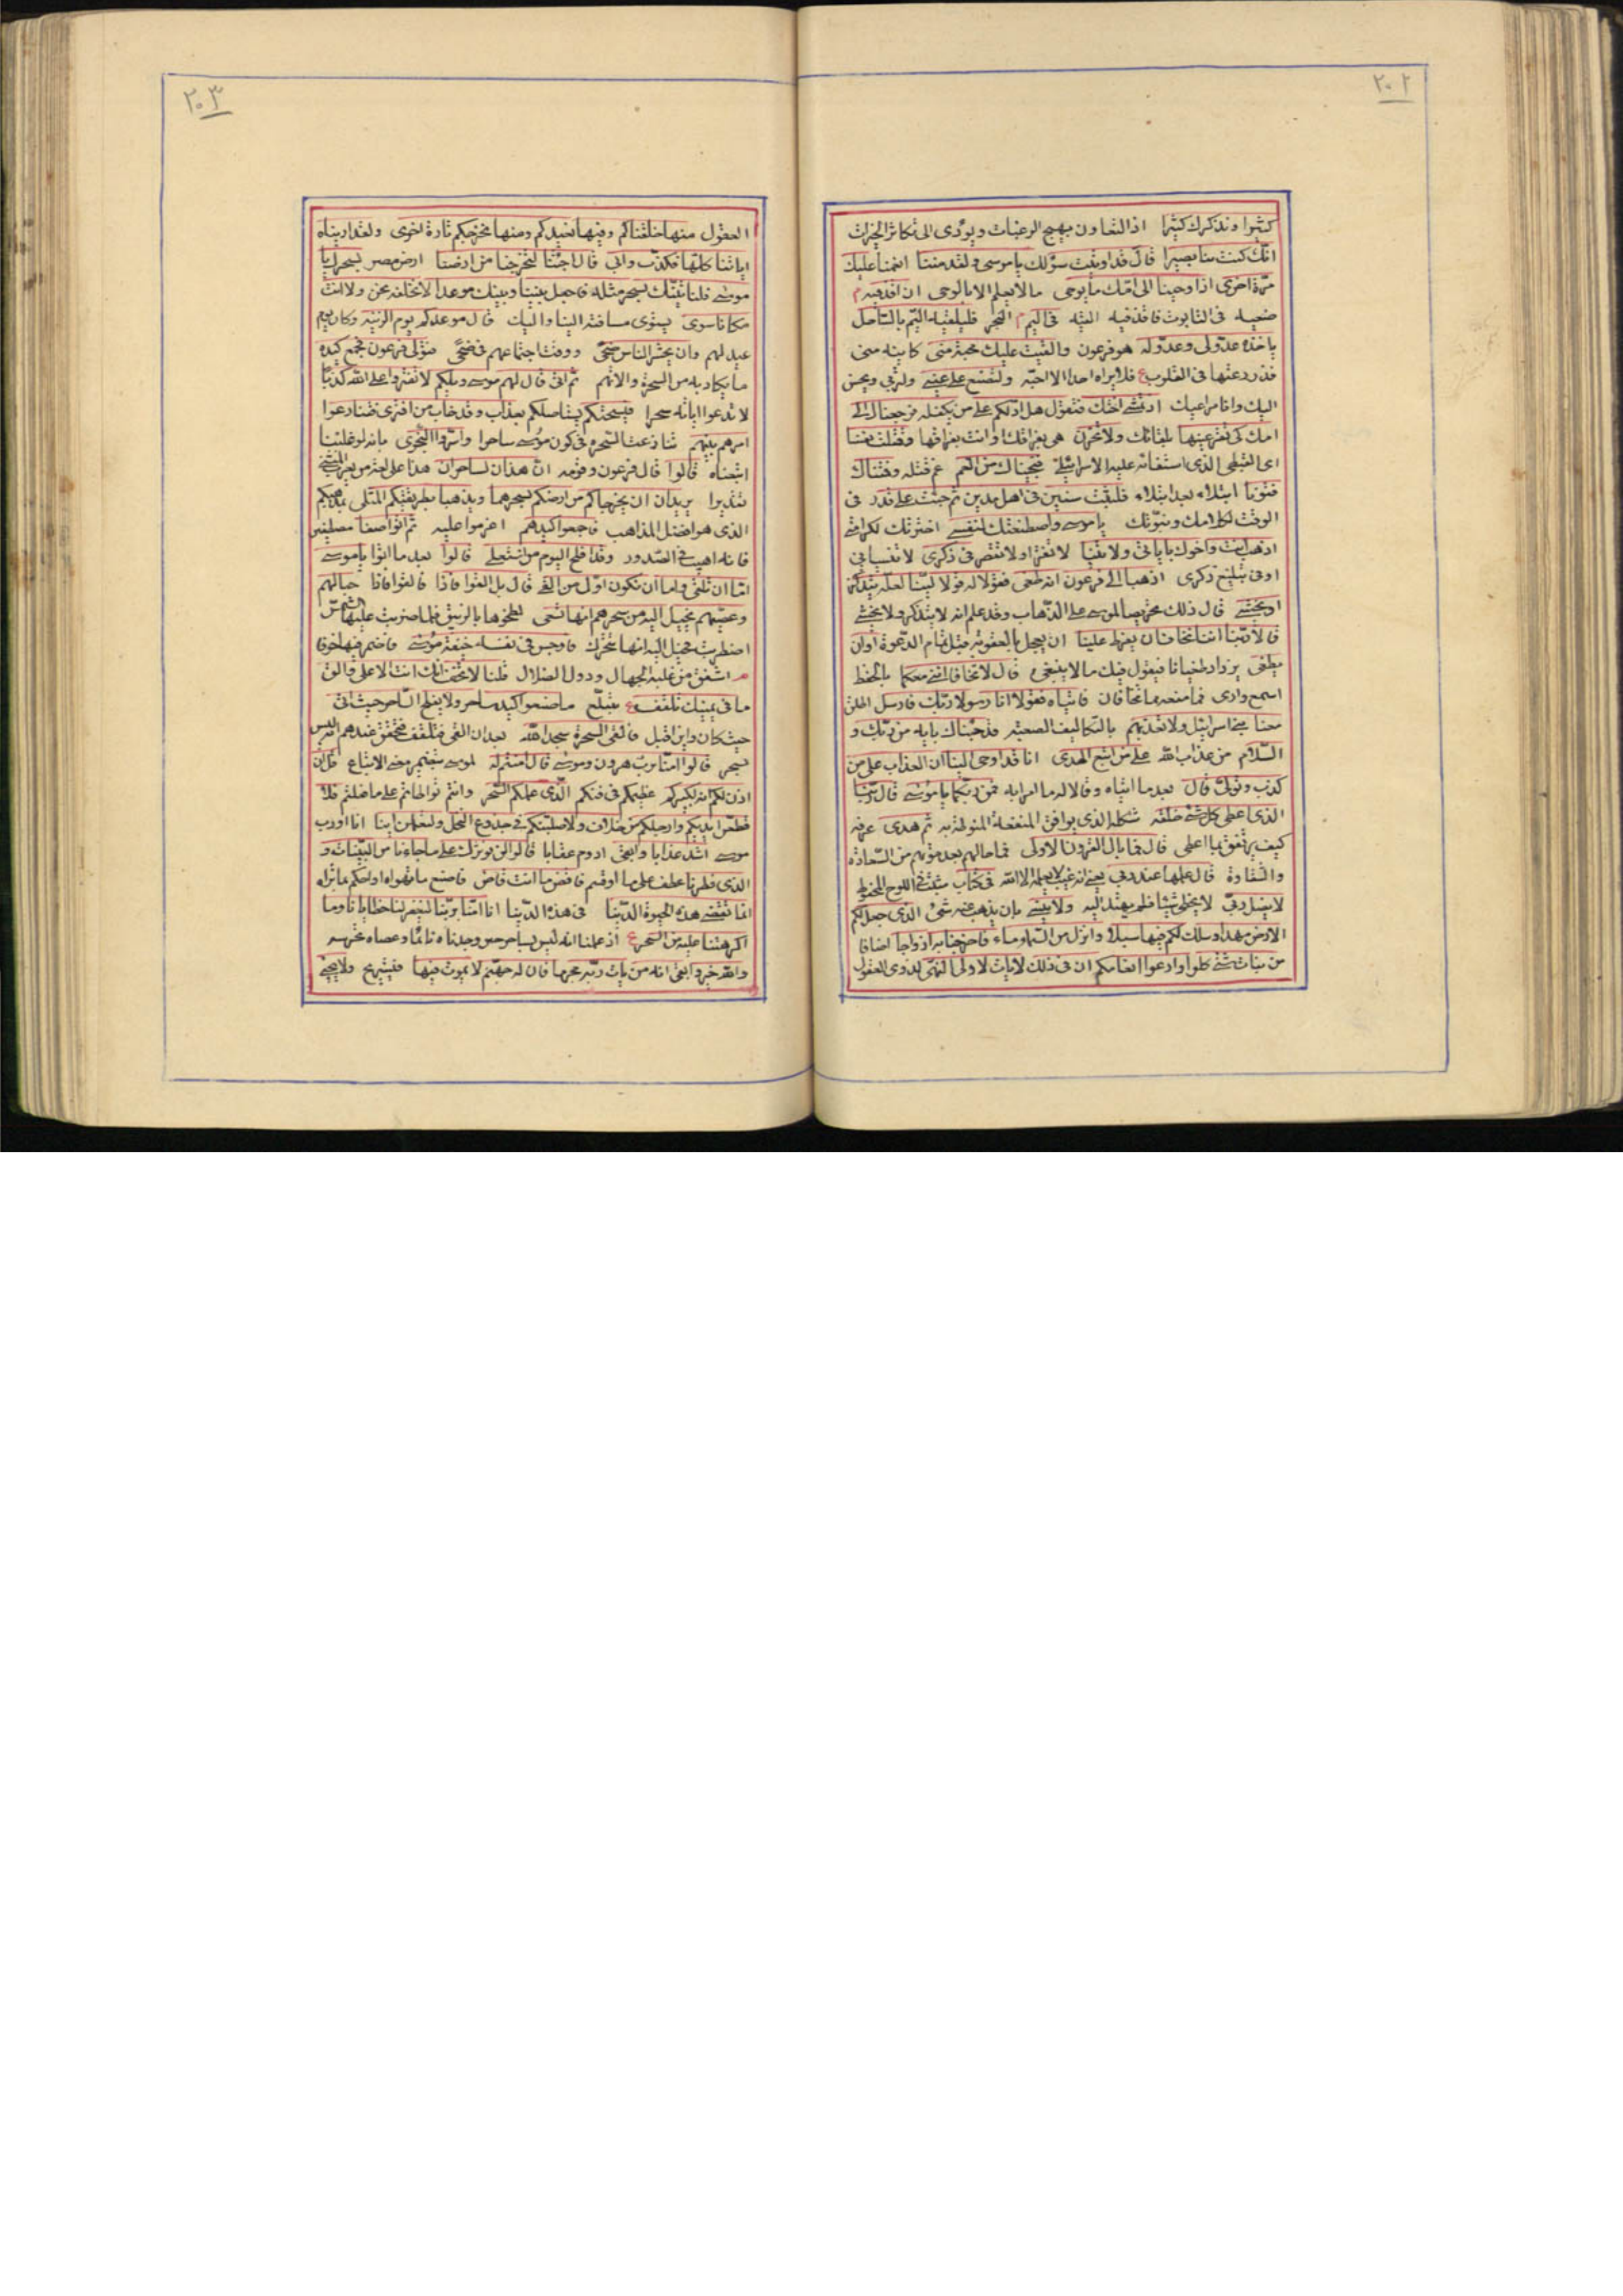 ٢٠٢
كثيرا ونذكرك كثيرا اذ التعاون يهيج الرغبات ويؤدى الى تكاثر الخيرات
انك كنت بنا بصيرا قال قد اوتيت سؤلك يا موسى ولقد مننا انعمنا عليك
مرة اخرى اذ اوحينا الى امك ما يوحى ما لا يعلم الا بالوحى ان اقذفيه
ضعيه فى التابوت فاقذفيه القيه فى اليم البحر فليلقيه اليم بالساحل
ياخذه عدو لى وعدو له هو فرعون والقيت عليك محبة منى كاينة منى
قد زرعتها فى القلوب فلا يراه احد الا احبه ولتصنع على عينى ولتربى ويحسن
اليك وانا مراعيك اذ تمشى اختك فتقول هل ادلكم على من يكفله فرجعناك الى
امك كى تقر عينها بلقائك ولا تحزن هى بفراقك او انت بفراقها وقتلت نفسا
اى القبطى الذى استغاثه عليه الاسرائيلى فنجيناك من الغم غم قتله وفتناك
فتونا ابتلاء بعد ابتلاء فلبثت سنين فى اهل مدين ثم جئت على قدر فى
الوقت لكلامك ونبوتك يا موسى واصطنعتك لنفسى اخترتك لكرامتى
اذهب انت واخوك باياتى ولا تنيا لا تفترا ولا تقصرا فى ذكرى لا تنسيانى
او فى تبليغ ذكرى اذهبا الى فرعون انه طغى فقولا له قولا لينا لعله يتذكر
او يخشى قال ذلك تحريصا لموسى على الذهاب وقد علم انه لا يتذكر ولا يخشى
قالا ربنا اننا نخاف ان يفرط علينا ان يعجل بالعقوبة قبل تمام الدعوة او ان
يطغى يزداد طغيانا فيقول فيك ما لا ينبغى قال لا تخافا اننى معكما بالحفظ
اسمع وارى فامنعه مما تخافان فاتياه فقولا انا رسولا ربك فارسل اطلق
معنا بنى اسرائيل ولا تعذبهم بالتكاليف الصعبة قد جئناك باية من ربك و
السلام من عذاب الله على من اتبع الهدى انا قد اوحى الينا ان العذاب على من
كذب وتولى قال بعد ما اتياه وقالا له ما امرا به فمن ربكما يا موسى قال ربنا
الذى اعطى كل شئ خلقه شكله الذى يوافق المنفعة المنوطة به ثم هدى عرفه
كيف يرتفق بما اعطى قال فما بال القرون الاولى فما حالهم بعد موتهم من السعادة
والشقاوة قال علمها عند ربى يعنى انه غيب لا يعلمه الا الله فى كتاب مثبت فى اللوح المحفوظ
لا يضل ربى لا يخطى شيئا فلم يهتد اليه ولا ينسى بان يذهب عنه شئ الذى جعل لكم
الارض مهدا وسلك لكم فيها سبلا وانزل من السماء ماء فاخرجنا به ازواجا اصنافا
من نبات شتى كلوا وارعوا انعامكم ان فى ذلك لايات لاولى النهى لذوى العقول
٢٠٣
العقول منها خلقناكم وفيها نعيدكم ومنها نخرجكم تارة اخرى ولقد اريناه
اياتنا كلها فكذب وابى قال اجئتنا لتخرجنا من ارضنا ارض مصر بسحرك يا
موسى فلناتينك بسحر مثله فاجعل بيننا وبينك موعدا لا نخلفه نحن ولا انت
مكانا سوى يستوى مسافته الينا واليك قال موعدكم يوم الزينة وكان يوم
عيد لهم وان يحشر الناس ضحى ووقت اجتماعهم فى ضحى فتولى فرعون فجمع كيده
ما يكاد به من السحرة والاتهم ثم اتى قال لهم موسى ويلكم لا تفتروا على الله كذبا
لا تدعوا اياته سحرا فيسحتكم يستاصلكم بعذاب وقد خاب من افترى فتنازعوا
امرهم بينهم تنازعت السحرة فى كون موسى ساحرا واسروا النجوى بانه لو غلبنا
اتبعناه قالوا قال فرعون وقومه ان هذان لساحران هذا على لغة من يعرب المثنى
تقديرا يريدان ان يخرجاكم من ارضكم بسحرهما ويذهبا بطريقتكم المثلى بمذهبكم
الذى هو افضل المذاهب فاجمعوا كيدهم اعزموا عليه ثم ائتوا صفا مصطفين
فانه اهيب فى الصدور وقد افلح اليوم من استعلى قالوا بعد ما اتوا يا موسى
اما ان تلقى واما ان نكون اول من القى قال بل القوا فاذا فالقوا فاذا حبالهم
وعصيهم يخيل اليه من سحرهم انها تسعى لطخوها بالزيبق فلما ضربت عليها الشمس
اضطربت فخيل اليه انها تتحرك فاوجس فى نفسه خيفة موسى فاضمر فيها خوفا
اشفق من غلبة الجهال ودول الضلال قلنا لا تخف انك انت الاعلى والق
ما فى يمينك تلقف تبتلع ما صنعوا كيد ساحر ولا يفلح الساحر حيث اتى
حيث كان واين اقبل فالقى السحرة سجدا لله بعد ان القى فتلقف فتحقق عندهم انه ليس
بسحر قالوا امنا برب هرون وموسى قال امنتم له لموسى بتضمين معنى الاتباع قبل ان
اذن لكم انه لكبيركم عظيمكم فى فنكم الذى علمكم السحر وانتم تواطاتم على ما فعلتم فلا
قطعن ايديكم وارجلكم من خلاف ولاصلبنكم فى جذوع النخل ولتعلمن اينا انا او رب
موسى اشد عذابا وابقى ادوم عقابا قالوا لن نؤثرك على ما جاءنا من البينات و
الذى فطرنا عطف على ما او قسم فاقض ما انت قاض فاصنع ما تهواه او احكم بما تراه
انما تقضى هذه الحيوة الدنيا فى هذه الدنيا انا امنا بربنا ليغفر لنا خطايانا وما
اكرهتنا عليه من السحر اذ علمنا انه ليس بساحر حين وجدناه نائما وعصاه تحرسه
والله خير وابقى انه من يات ربه مجرما فان له جهنم لا يموت فيها فيستريح ولا يحيى